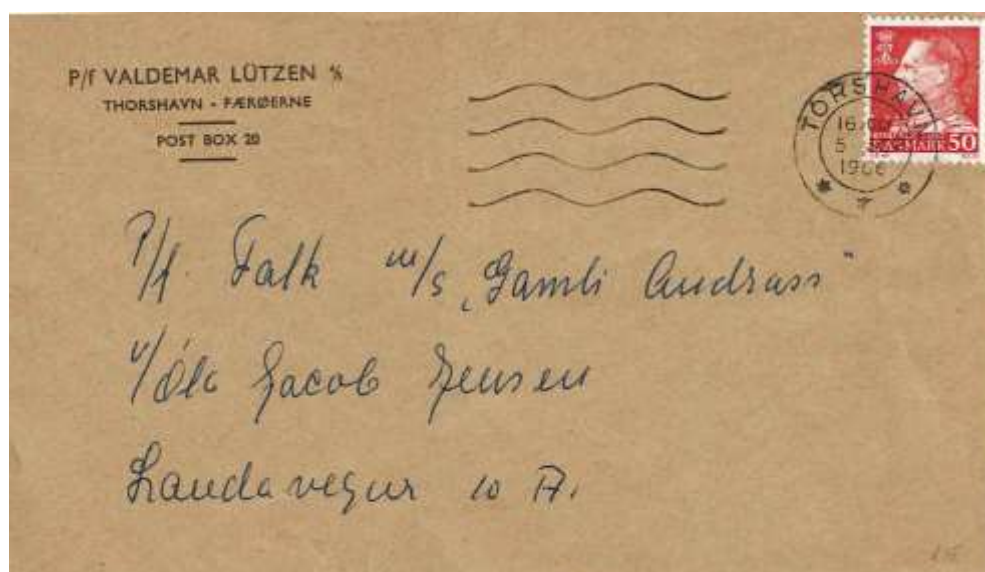 P/f VALDEMAR LÜTZEN %
THORSHAVN - FÆRØERNE
POST BOX 20
TORSHAVN
16
5
1966
DANMARK 50
P/f. Falk m/s „Gamli Andrass“
v/Óla Jacob Jensen
Landavegur 10 A.